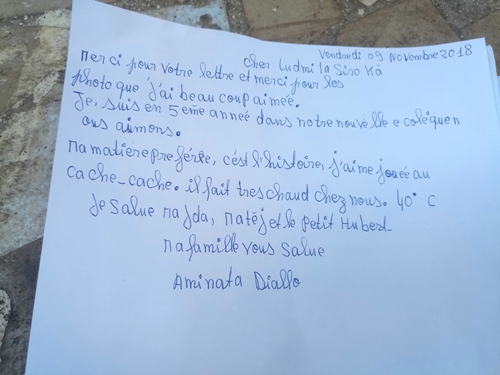 Vendredi 09 Novembre 2018
cher Ludmila Siroká
Merci pour votre lettre et merci pour les
photo que j'ai beaucoup aimée.
Je, suis en 5eme anneé dans notre nouvelle e coléque n
ous aimons.
Ma matière preférée, c'est l'histoire, j'aime joueé au
cache-cache. il fait tres chaud chez nous. 40° c
Je salue Majda, Matéj et le petit Hubert-
Ma famille vous salue
Aminata Diallo